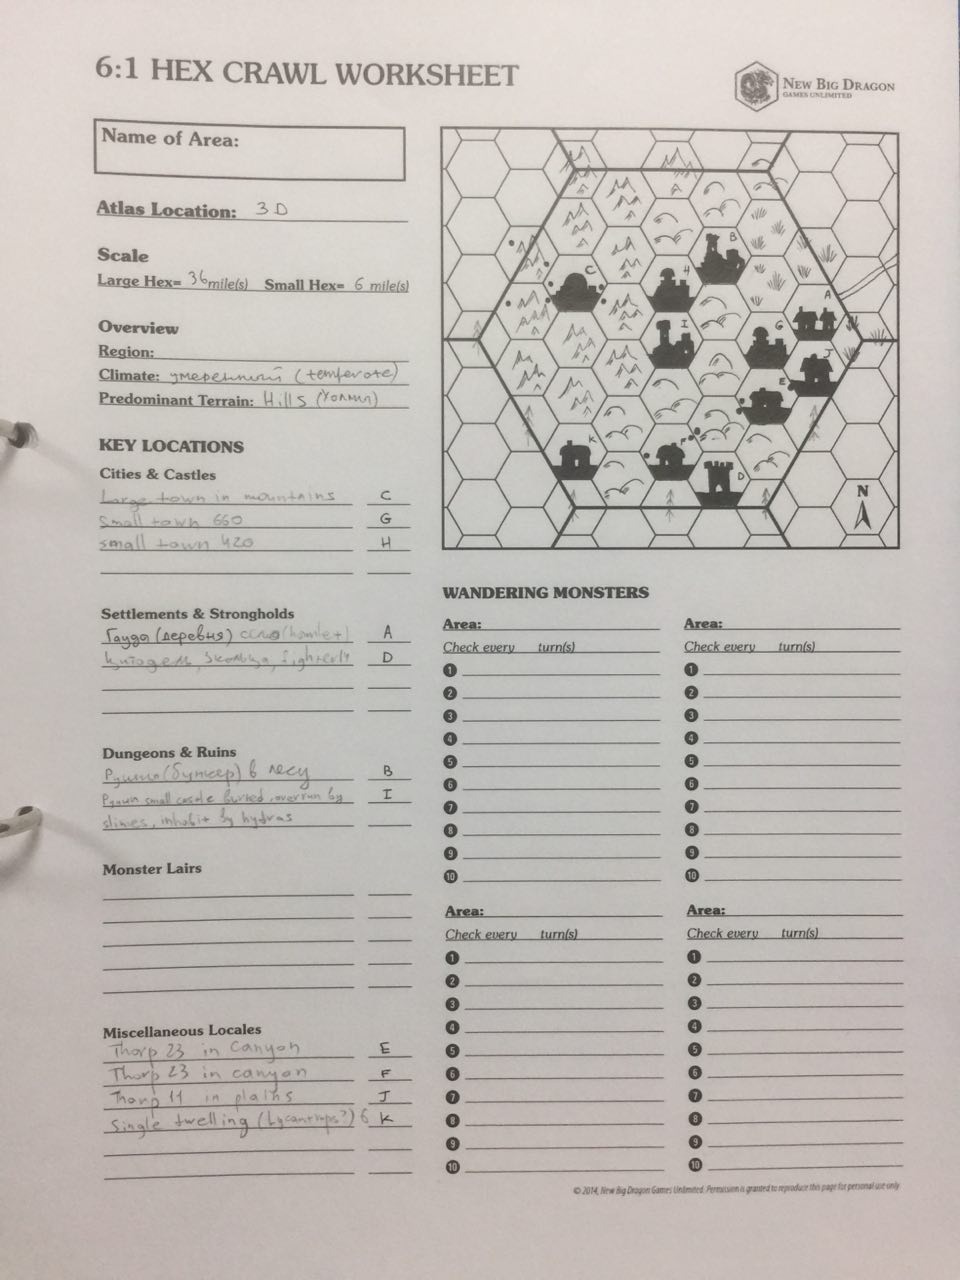 6:1 HEX CRAWL WORKSHEET
NEW BIG DRAGON
GAMES UNLIMITED
Name of Area:
Atlas Location: 3D
Scale
Large Hex= 36 mile(s) Small Hex= 6 mile(s)
Overview
Region:
Climate: умеренный (temperate)
Predominant Terrain: Hills (холмы)
KEY LOCATIONS
Cities & Castles
Large town in mountains C
Small town 660 G
small town 420 H
Settlements & Strongholds
Гауда (деревня) село (hamlet) A
D
Dungeons & Ruins
Руины (бункер) в лесу B
Руины small castle buried, overrun by I
slimes, inhabit by hydras
Monster Lairs
Miscellaneous Locales
Thorp 23 in Canyon E
Thorp 23 in canyon F
Thorp 11 in plains J
Single dwelling (Lycantrops?) 6 K
B
C
H
A
I
G
J
E
F
K
D
N
WANDERING MONSTERS
Area:
Check every turn(s)
1
2
3
4
5
6
7
8
9
10
Area:
Check every turn(s)
1
2
3
4
5
6
7
8
9
10
Area:
Check every turn(s)
1
2
3
4
5
6
7
8
9
10
Area:
Check every turn(s)
1
2
3
4
5
6
7
8
9
10
© 2014, New Big Dragon Games Unlimited. Permission is granted to reproduce this page for personal use only.